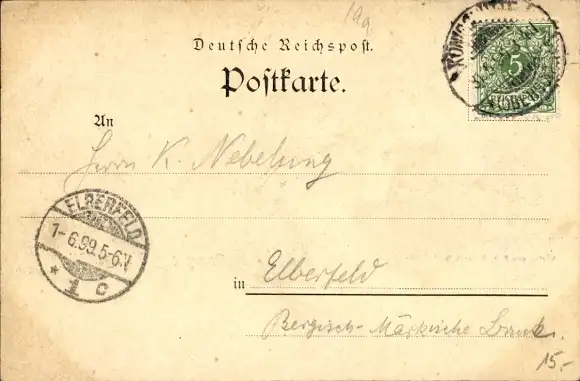 Deutsche Reichspost.
Postkarte.
5
An
Herrn K. Nebelung
ELBERFELD
1-6.99.5-6.V
* 1 c
in Elberfeld
Bergisch-Märkische Bank.
15.-